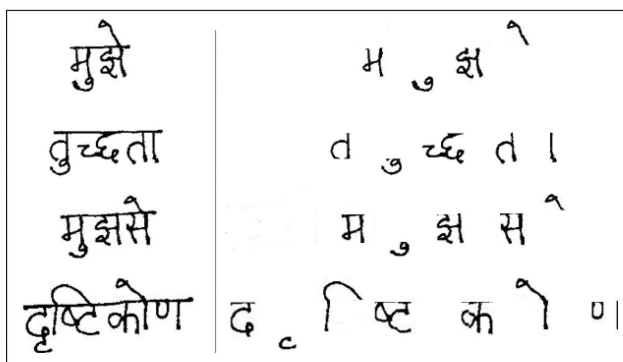 मुझे म ु झ े
तुच्छता त ु च्छ त ा
मुझसे म ु झ स े
दृष्टिकोण द ृ ि ष्ट क ो ण